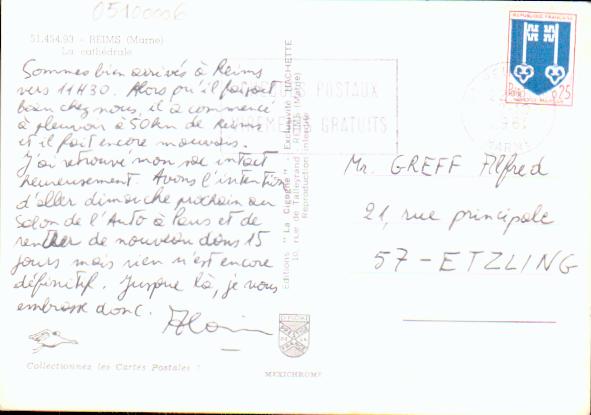 05100006
51.454.93 - REIMS (Marne)
La cathédrale
Sommes bien arrivés à Reims
vers 11H30. Alors qu'il faisait
beau chez nous, il a commencé
à pleuvoir à 50km de Reims
et il fait encore mauvais.
J'ai retrouvé mon sac intact
heureusement. Avons l'intention
d'aller dimanche prochain au
Salon de l'Auto à Paris et de
rentrer de nouveau dans 15
jours mais rien n'est encore
définitif. Jusque là, je vous
embrasse donc. Alain
Collectionnez les Cartes Postales !
Editions "La Cigogne" - Exclusivité HACHETTE
10, rue de Talleyrand - REIMS (Marne)
Reproduction interdite
MEXICHROME
POSTAUX
VIREMENTS GRATUITS
REPUBLIQUE FRANÇAISE
0,25
Mr. GREFF Alfred
21, rue principale
57-ETZLING